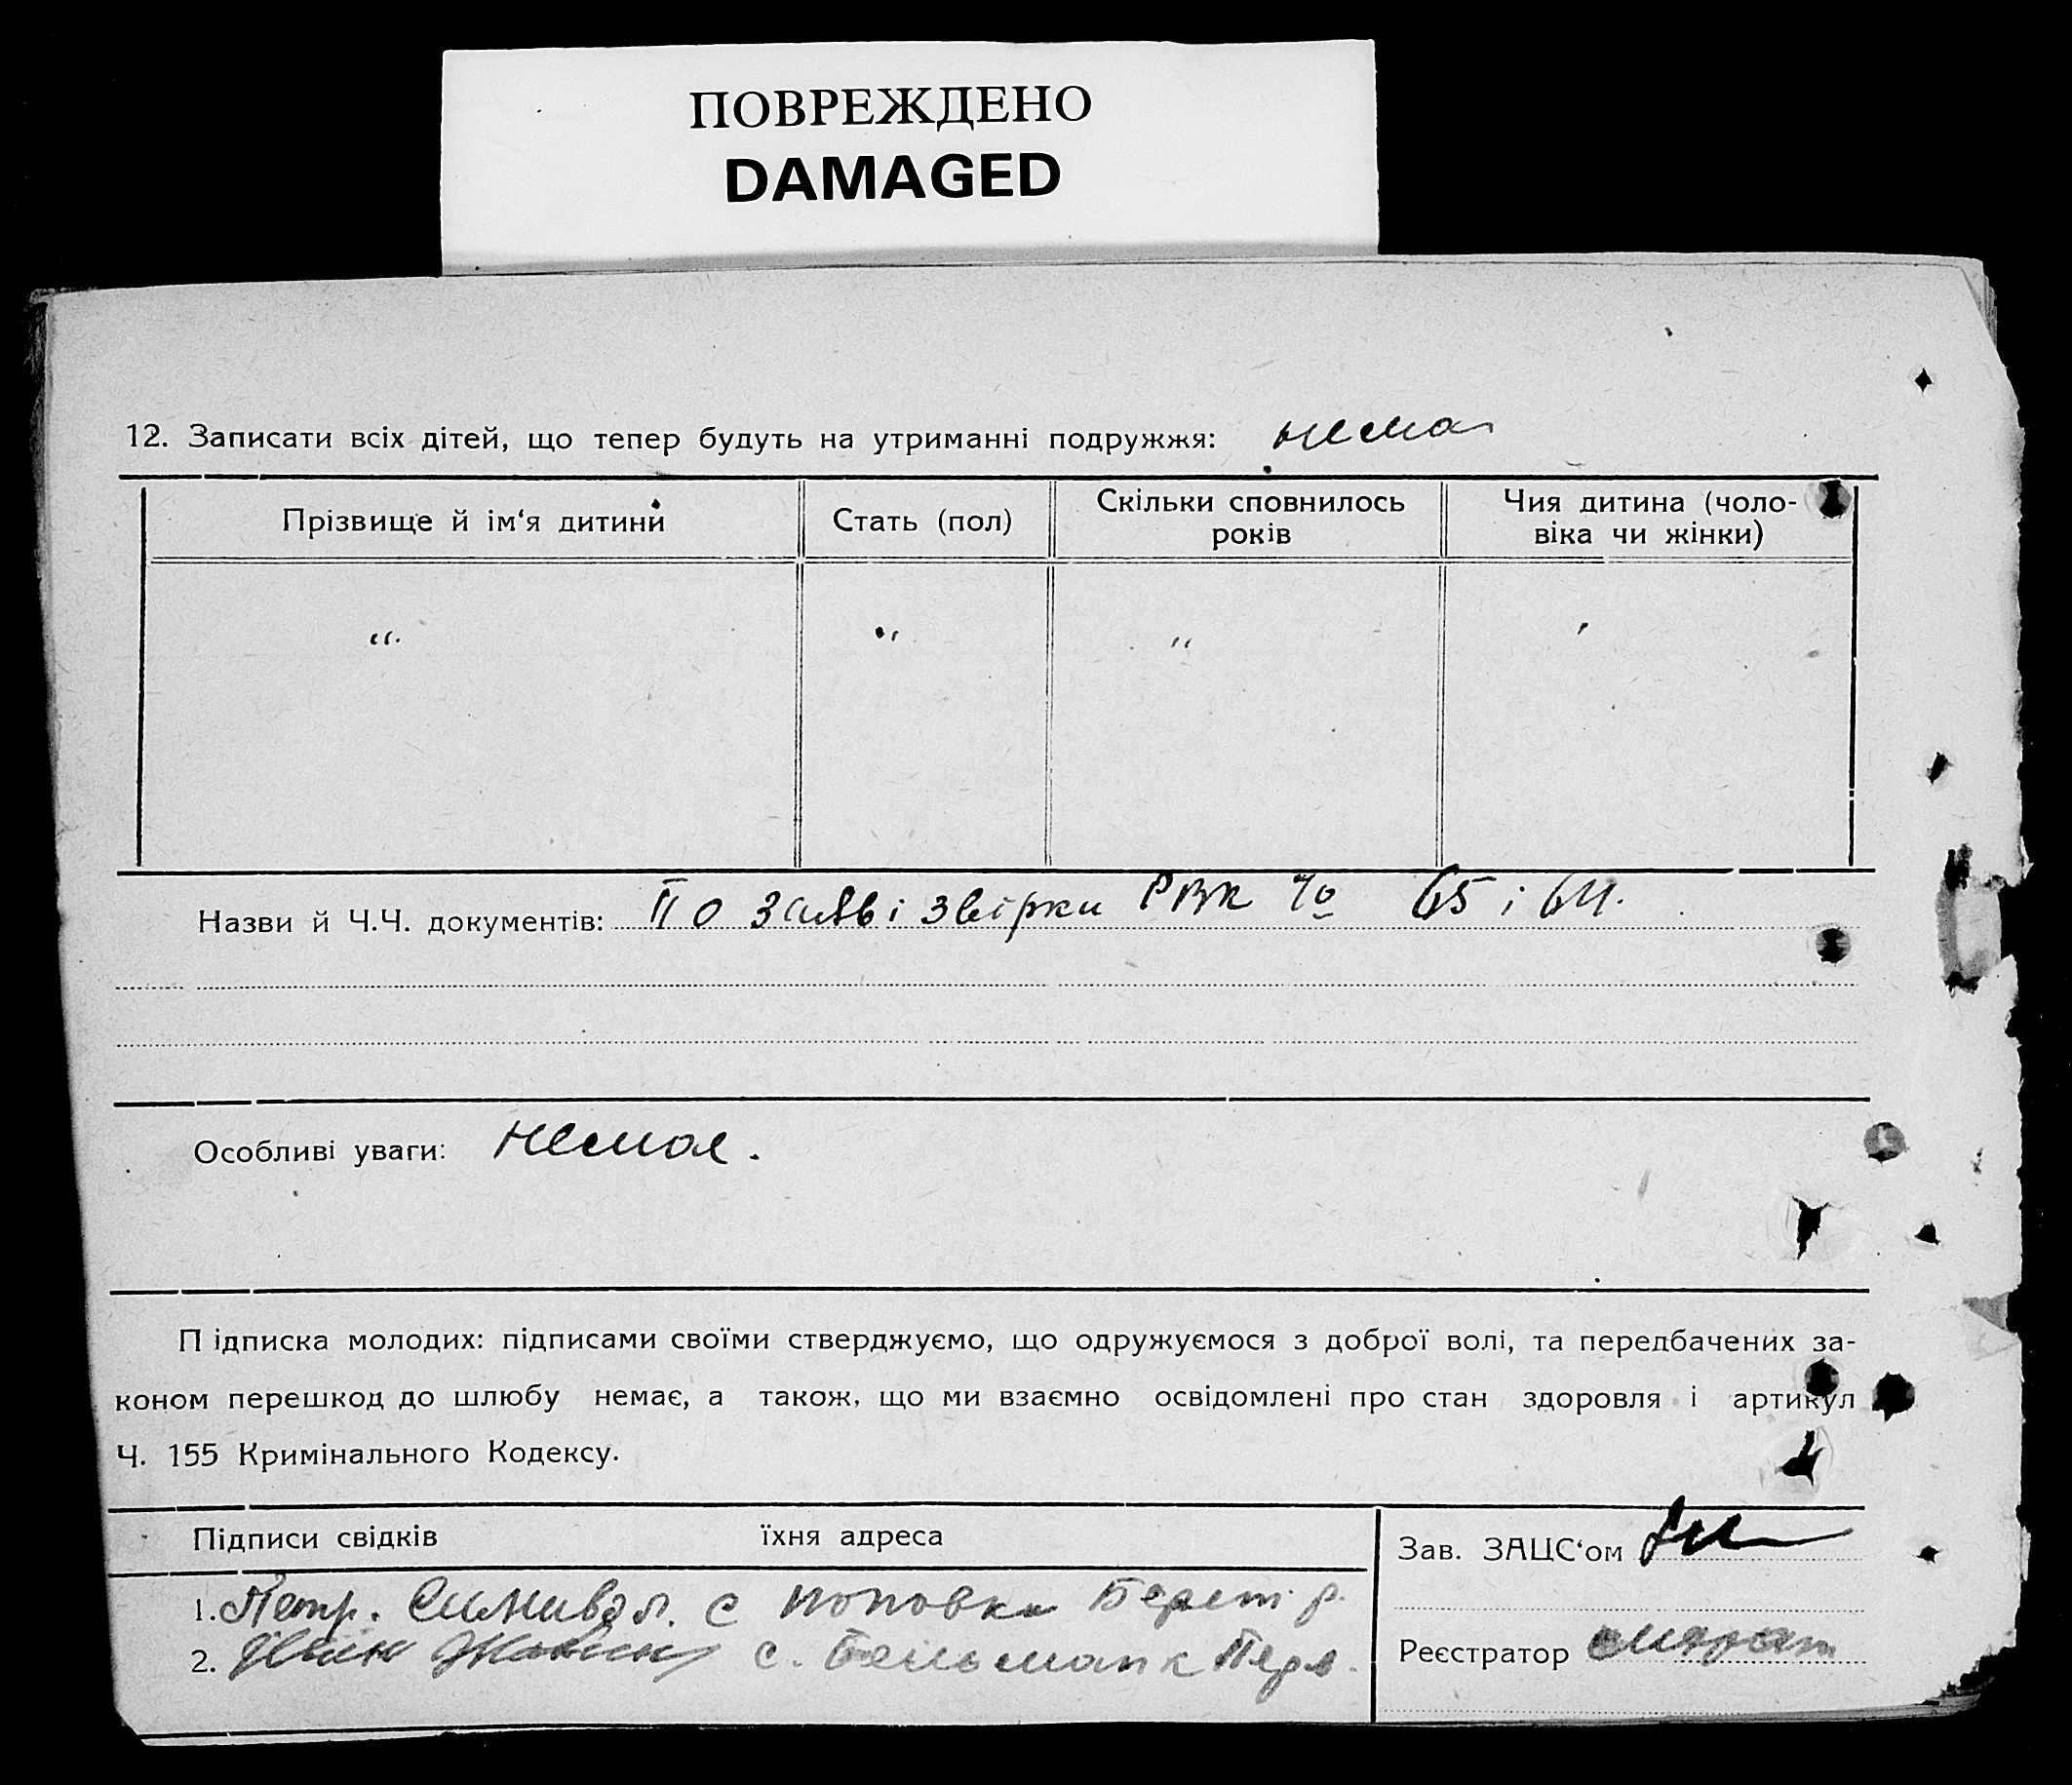 ПОВРЕЖДЕНО
DAMAGED
12. Записати всіх дітей, що тепер будуть на утриманні подружжя: нема
Прізвище й ім‘я дитини
Стать (пол)
Скільки сповнилось років
Чия дитина (чоло-
віка чи жінки)
" " "
Назви й Ч.Ч. документів: По заяві звірки РВК № 65 і 64.
Особливі уваги: немає.
П ідписка молодих: підписами своїми стверджуємо, що одружуємося з доброї волі, та передбачених за-
коном перешкод до шлюбу немає, а також, що ми взаємно освідомлені про стан здоровля і артикул
Ч. 155 Кримінального Кодексу.
Підписи свідків їхня адреса
Зав. ЗАЦС‘ом
1. Петр. с Поповка
2. с. Бельманк
Реєстратор